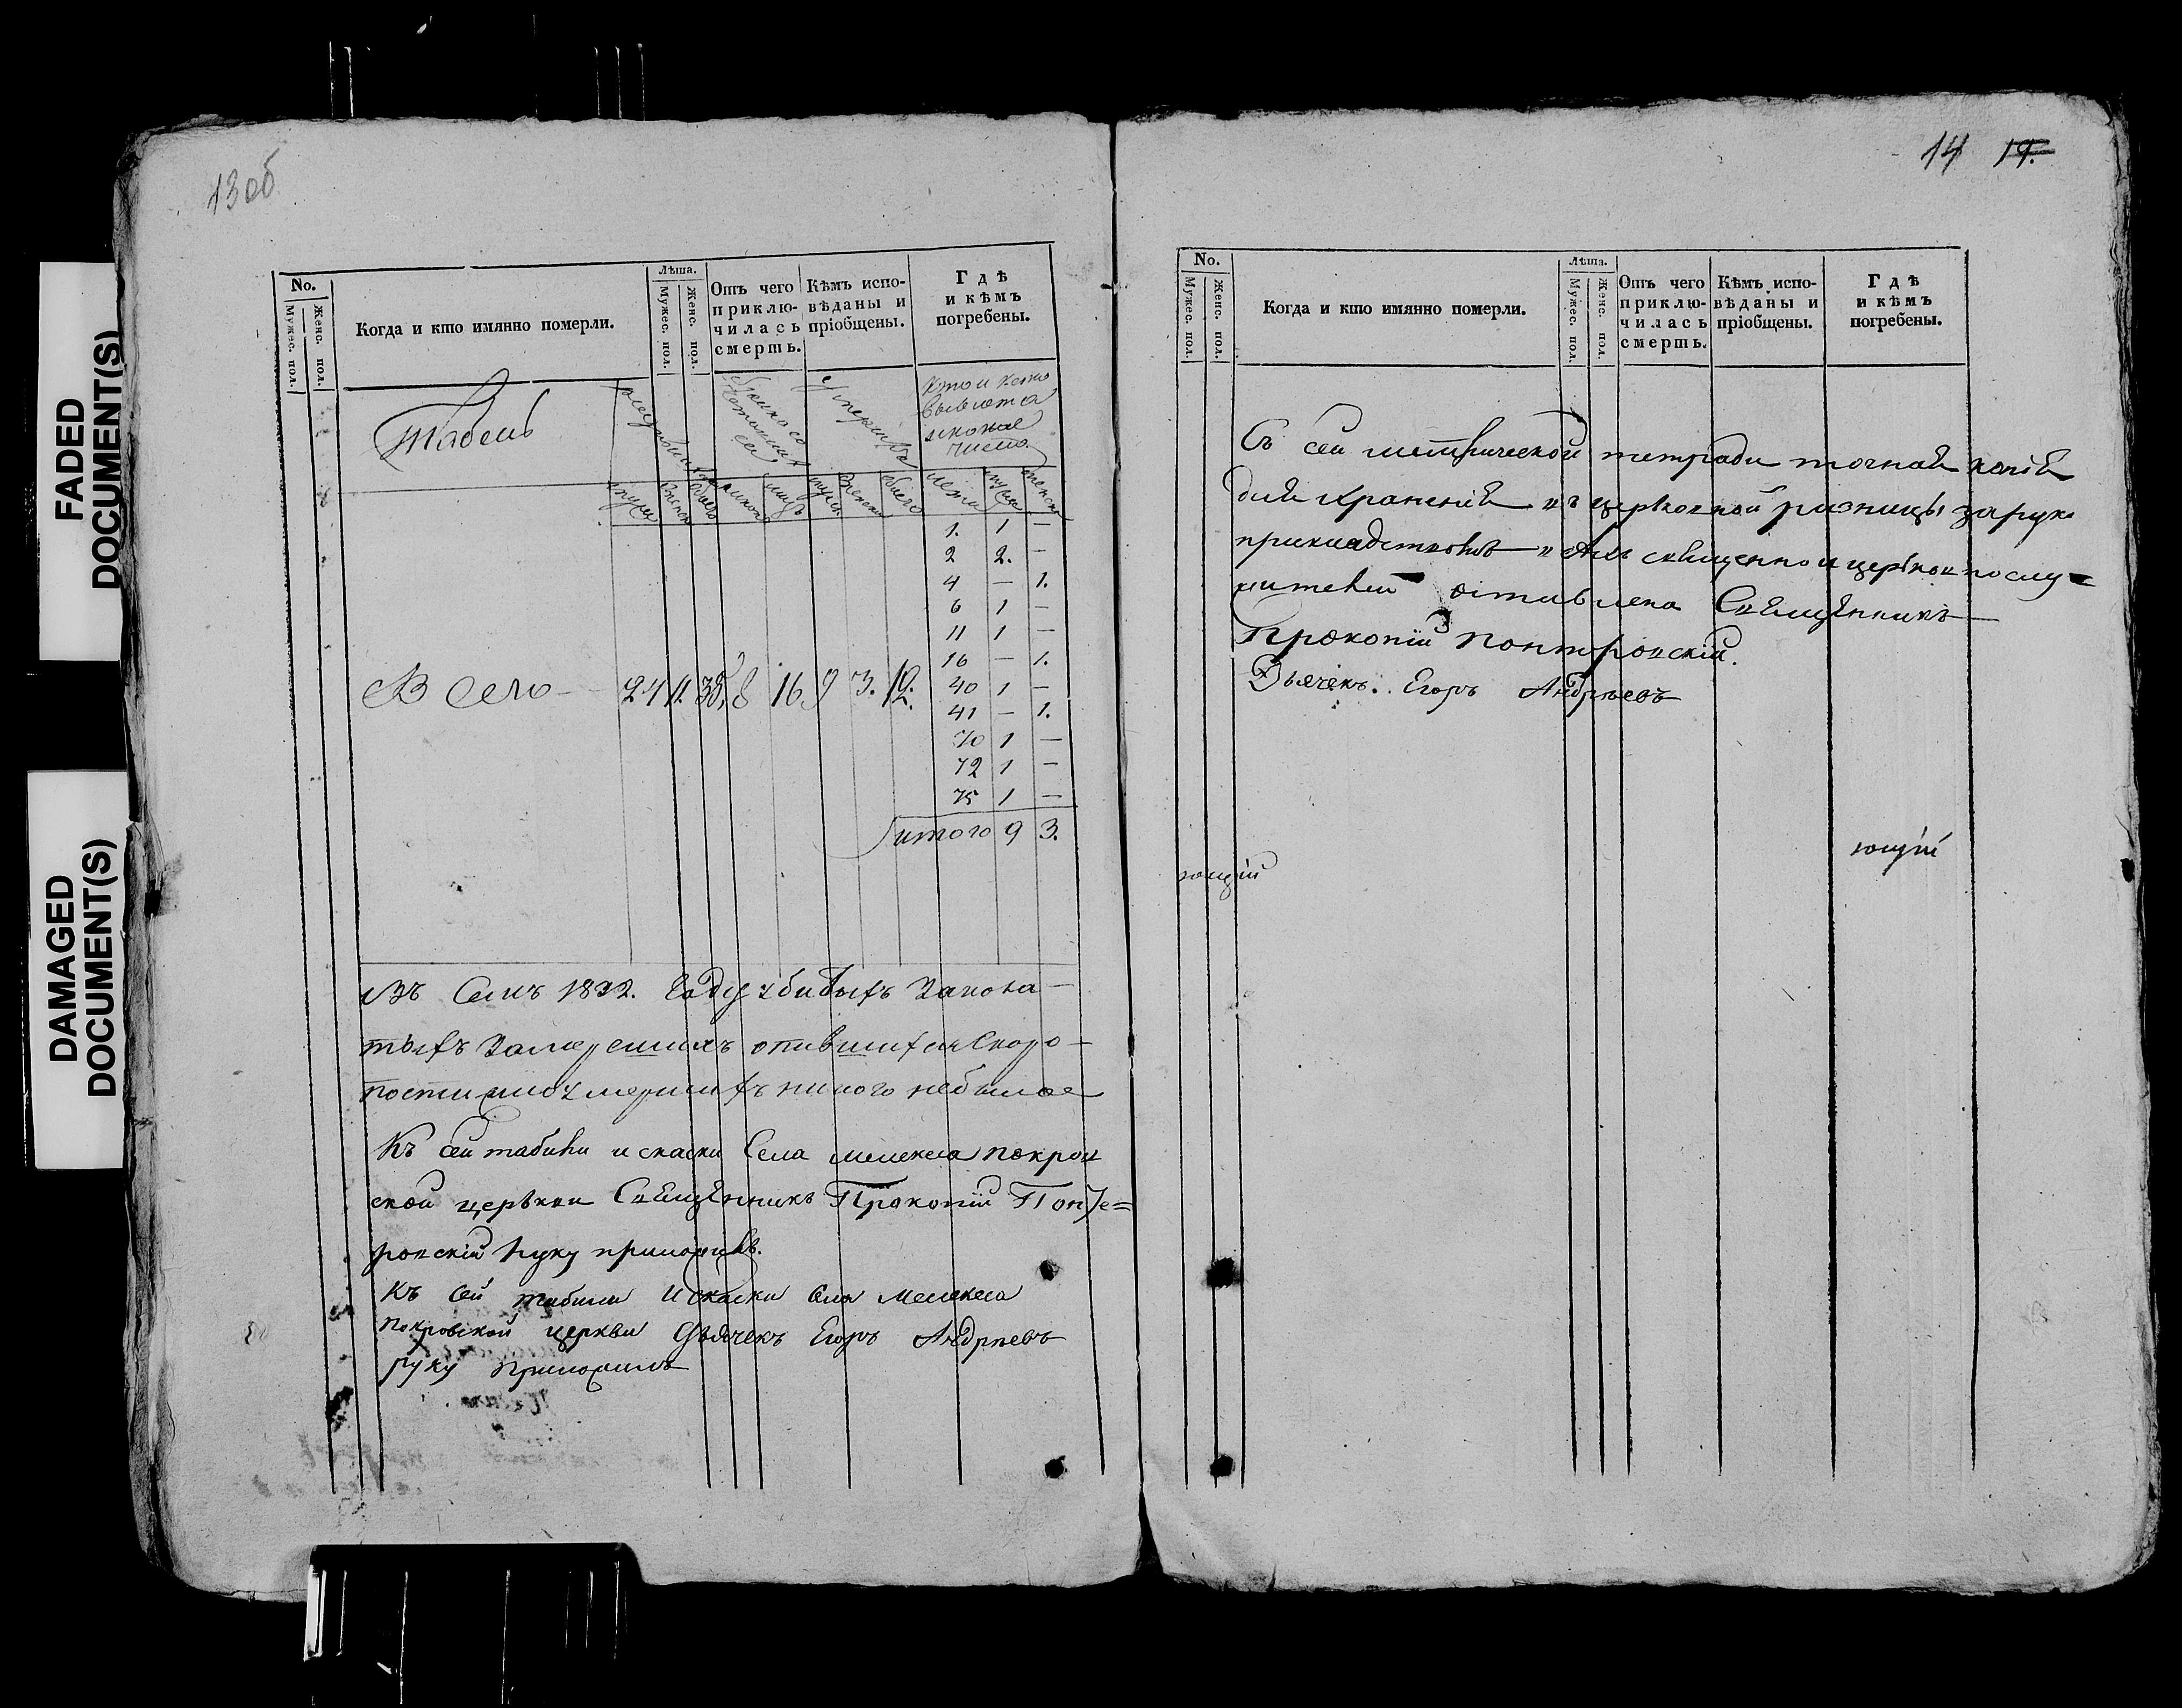 FADED
DOCUMENT(S)
DAMAGED
DOCUMENT(S)
13 об
No.
Мужес. пол.
Женс. пол.
Когда и кто имянно померли.
Лѣта.
Мужес. пол.
Женс. пол.
Отъ чего приклю-
чилась смерть.
Кѣмъ испо-
вѣданы и
пріобщены.
Гдѣ
и кѣмъ
погребены.
Табель
Умершихъ
лета
1. 1 —
2 2. —
4 — 1.
6 1 —
11 1 —
16 — 1.
40 1 —
41 — 1.
70 1 —
72 1 —
75 1 —
итого 9 3.
Всего 24 11. 35, 8 16 9 3. 12.
Въ семъ 1832. году убитыхъ
опившихся скоро-
никого небыло
Къ сей табели и скаски села Мелекеса покров
ской церькви Священникъ Прокопій Понте=
ровскій руку приложилъ.
Къ сей табели и скаски села Мелекеса
Покровской церкви Дьячекъ Егоръ Андрѣевъ
руку приложилъ
14 19.
No.
Мужес. пол.
Женс. пол.
Когда и кто имянно померли.
Лѣта.
Мужес. пол.
Женс. пол.
Отъ чего
приклю-
чилась
смерть.
Кѣмъ испо-
вѣданы и
пріобщены.
Гдѣ
и кѣмъ
погребены.
Съ сей метрической тетради точная копія
для храненія въ церковной ризницы за руко
прикладствовъ священно и церковнослу=
жителей оставлена Священникъ
Прокопій Понтеровскій.
Дьячекъ. Егоръ Андрѣевъ
ющій
ющій